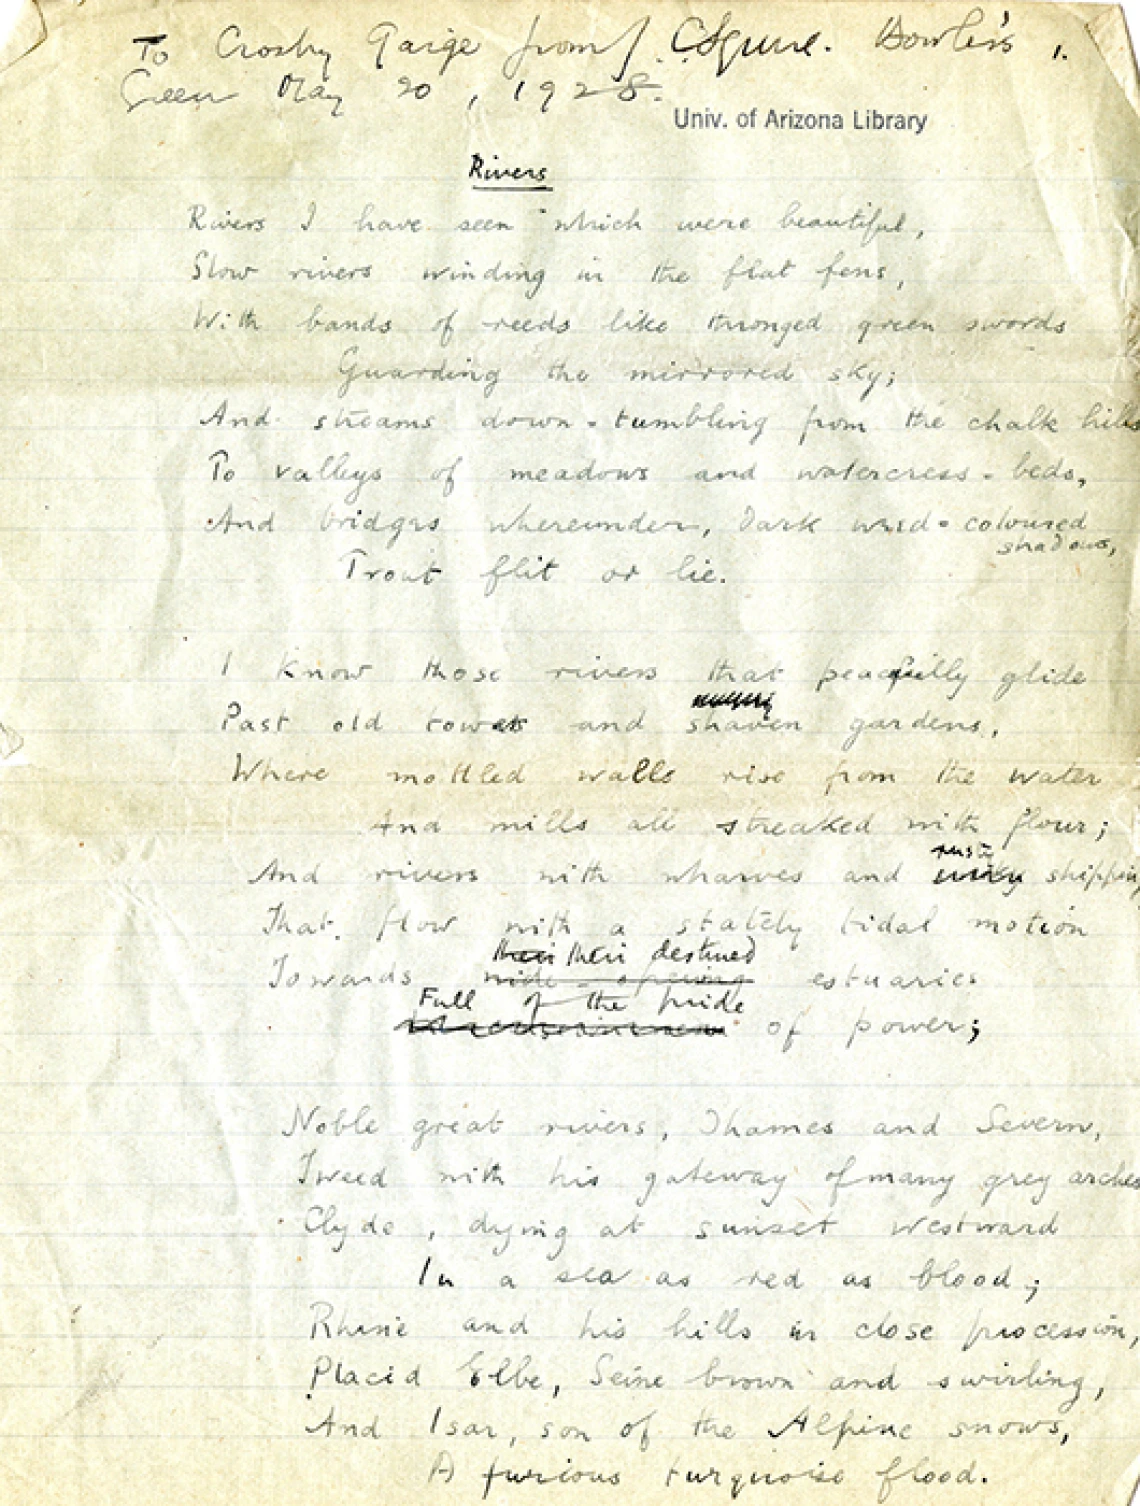 To Crosby Gaige from J. C. Squire. Bowler's
Green May 20, 1928.
Univ. of Arizona Library
Rivers
Rivers I have seen which were beautiful,
Slow rivers winding in the flat fens,
With bands of reeds like thronged green swords
Guarding the mirrored sky;
And streams down-tumbling from the chalk hills
To valleys of meadows and watercress-beds,
And bridges whereunder, dark weed-coloured
shadows,
Trout flit or lie.
I know those rivers that peacefully glide
Past old towers and shaven gardens,
Where mottled walls rise from the water
And mills all streaked with flour;
And rivers with wharves and rusty shipping
That flow with a stately tidal motion
their their destined
Towards wide-opening estuaries
Full of the pride
of power;
Noble great rivers, Thames and Severn,
Tweed with his gateway of many grey arches
Clyde, dying at sunset westward
In a sea as red as blood;
Rhine and his hills in close procession,
Placid Elbe, Seine brown and swirling,
And Isar, son of the Alpine snows,
A furious turquoise flood.